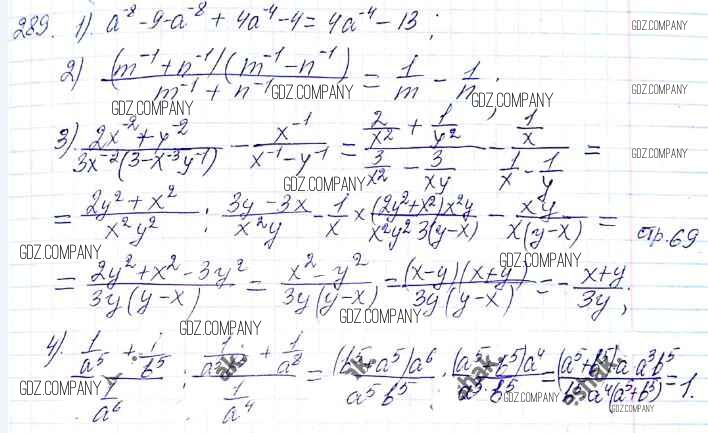 289. 1). a⁻⁸ - 9 - a⁻⁸ + 4a⁻⁴ - 4 = 4a⁻⁴ - 13;
GDZ.COMPANY
2) (m⁻¹ + n⁻¹)(m⁻¹ - n⁻¹) / m⁻¹ + n⁻¹ = 1/m - 1/n;
GDZ.COMPANY
GDZ.COMPANY GDZ.COMPANY GDZ.COMPANY
3). 2x⁻² + y⁻² / 3x⁻²(3 - x⁻³y⁻¹) - x⁻¹ / x⁻¹ - y⁻¹ = 2/x² + 1/y² / 3/x² - 3/xy - 1/x / 1/x - 1/y =
GDZ.COMPANY
GDZ.COMPANY
= 2y² + x² / x²y² : 3y - 3x / x²y - 1/x × (2y² + x²)x²y / x²y² 3(y - x) - xy / x(y - x) = стр. 69
GDZ.COMPANY
GDZ.COMPANY
= 2y² + x² - 3y² / 3y(y - x) = x² - y² / 3y(y - x) = (x - y)(x + y) / 3y(y - x) = - x + y / 3y;
GDZ.COMPANY
GDZ.COMPANY
4). 1/a⁵ + 1/b⁵ / 1/a⁶ : 1/a³ + 1/a⁸ / 1/a⁴ = (b⁵ + a⁵)a⁶ / a⁵b⁵ : (a⁵ + b⁵)a⁴ / a³ · b⁵ = (a⁵ + b⁵)a a³b⁵ / b⁵a⁴(a⁵ + b⁵) = 1.
GDZ.COMPANY GDZ.COMPANY GDZ.COMPANY